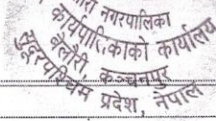 नगरपालिका
कार्यपालिकाको कार्यालय
बेलौरी, कञ्चनपुर
सुदूरपश्चिम प्रदेश, नेपाल